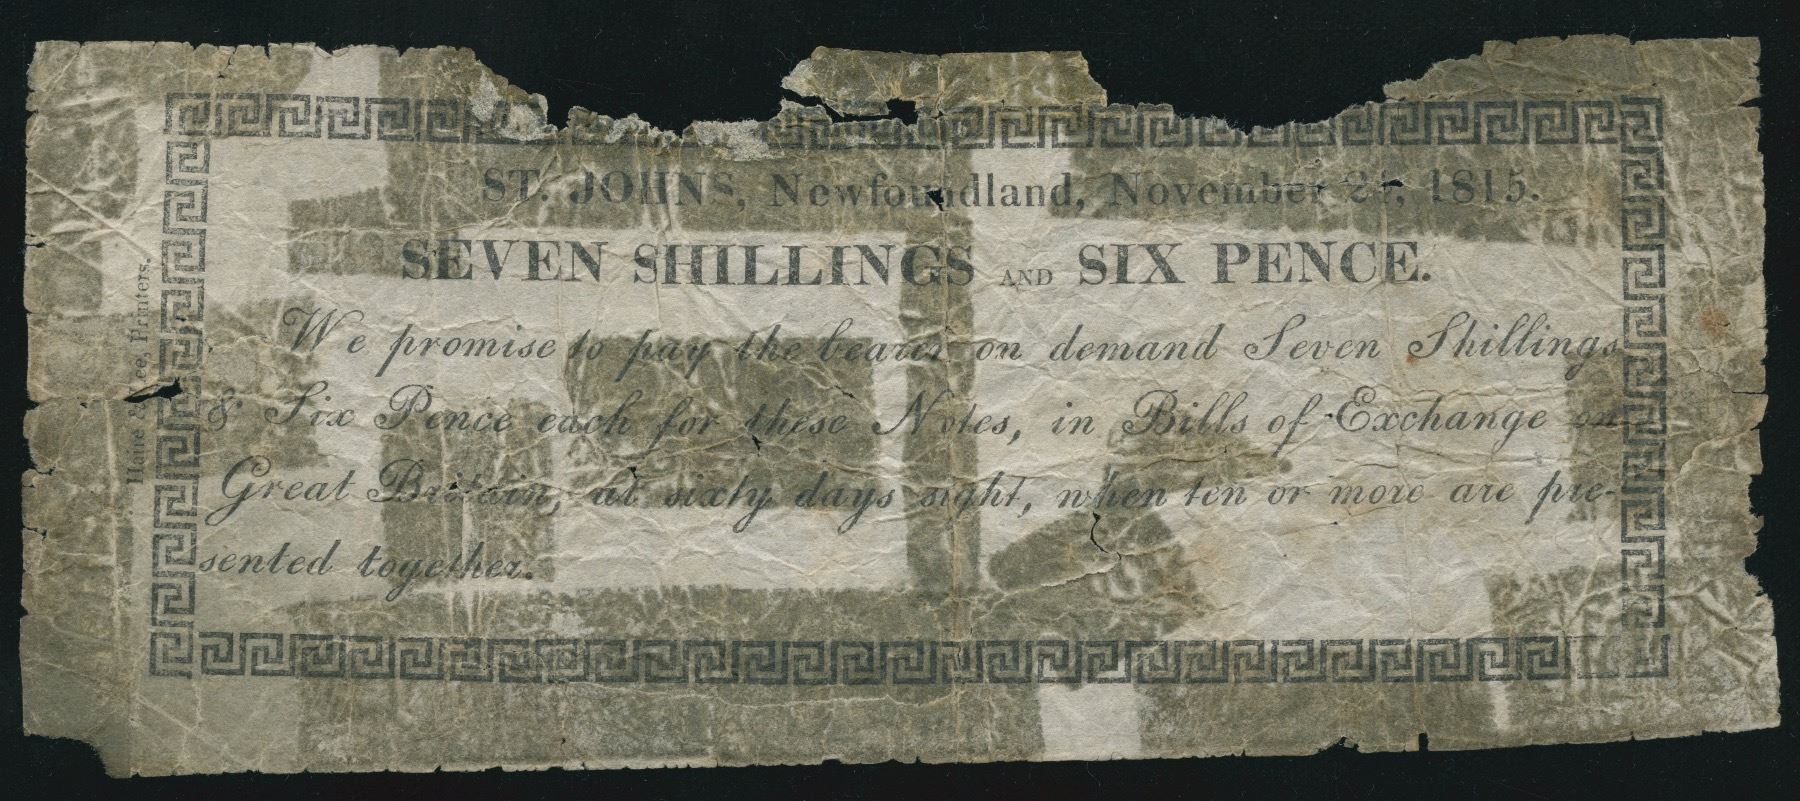 ST. JOHN'S, Newfoundland, November 2 , 1815.
SEVEN SHILLINGS AND SIX PENCE.
We promise to pay the bearer on demand Seven Shillings
& Six Pence each for these Notes, in Bills of Exchange on
Great Britain, at sixty days sight, when ten or more are pre-
sented together.
& Lee, Printers.